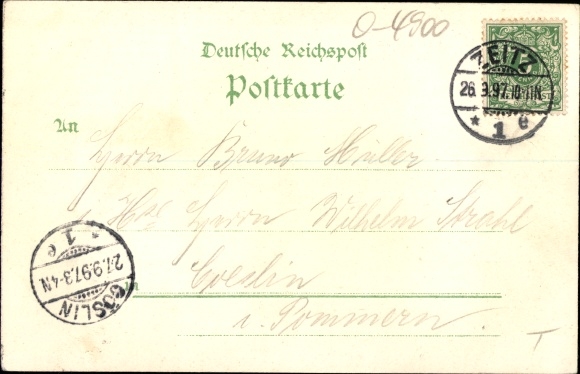 0-4900
Deutsche Reichspost
Postkarte
ZEITZ
26.9.97.10-11N.
* 1 e
An
Herrn Bruno Müller
Herrn Wilhelm Strahl
Coeslin
i. Pommern.
CÖSLIN
27.9.97.3-4N
* 1 e